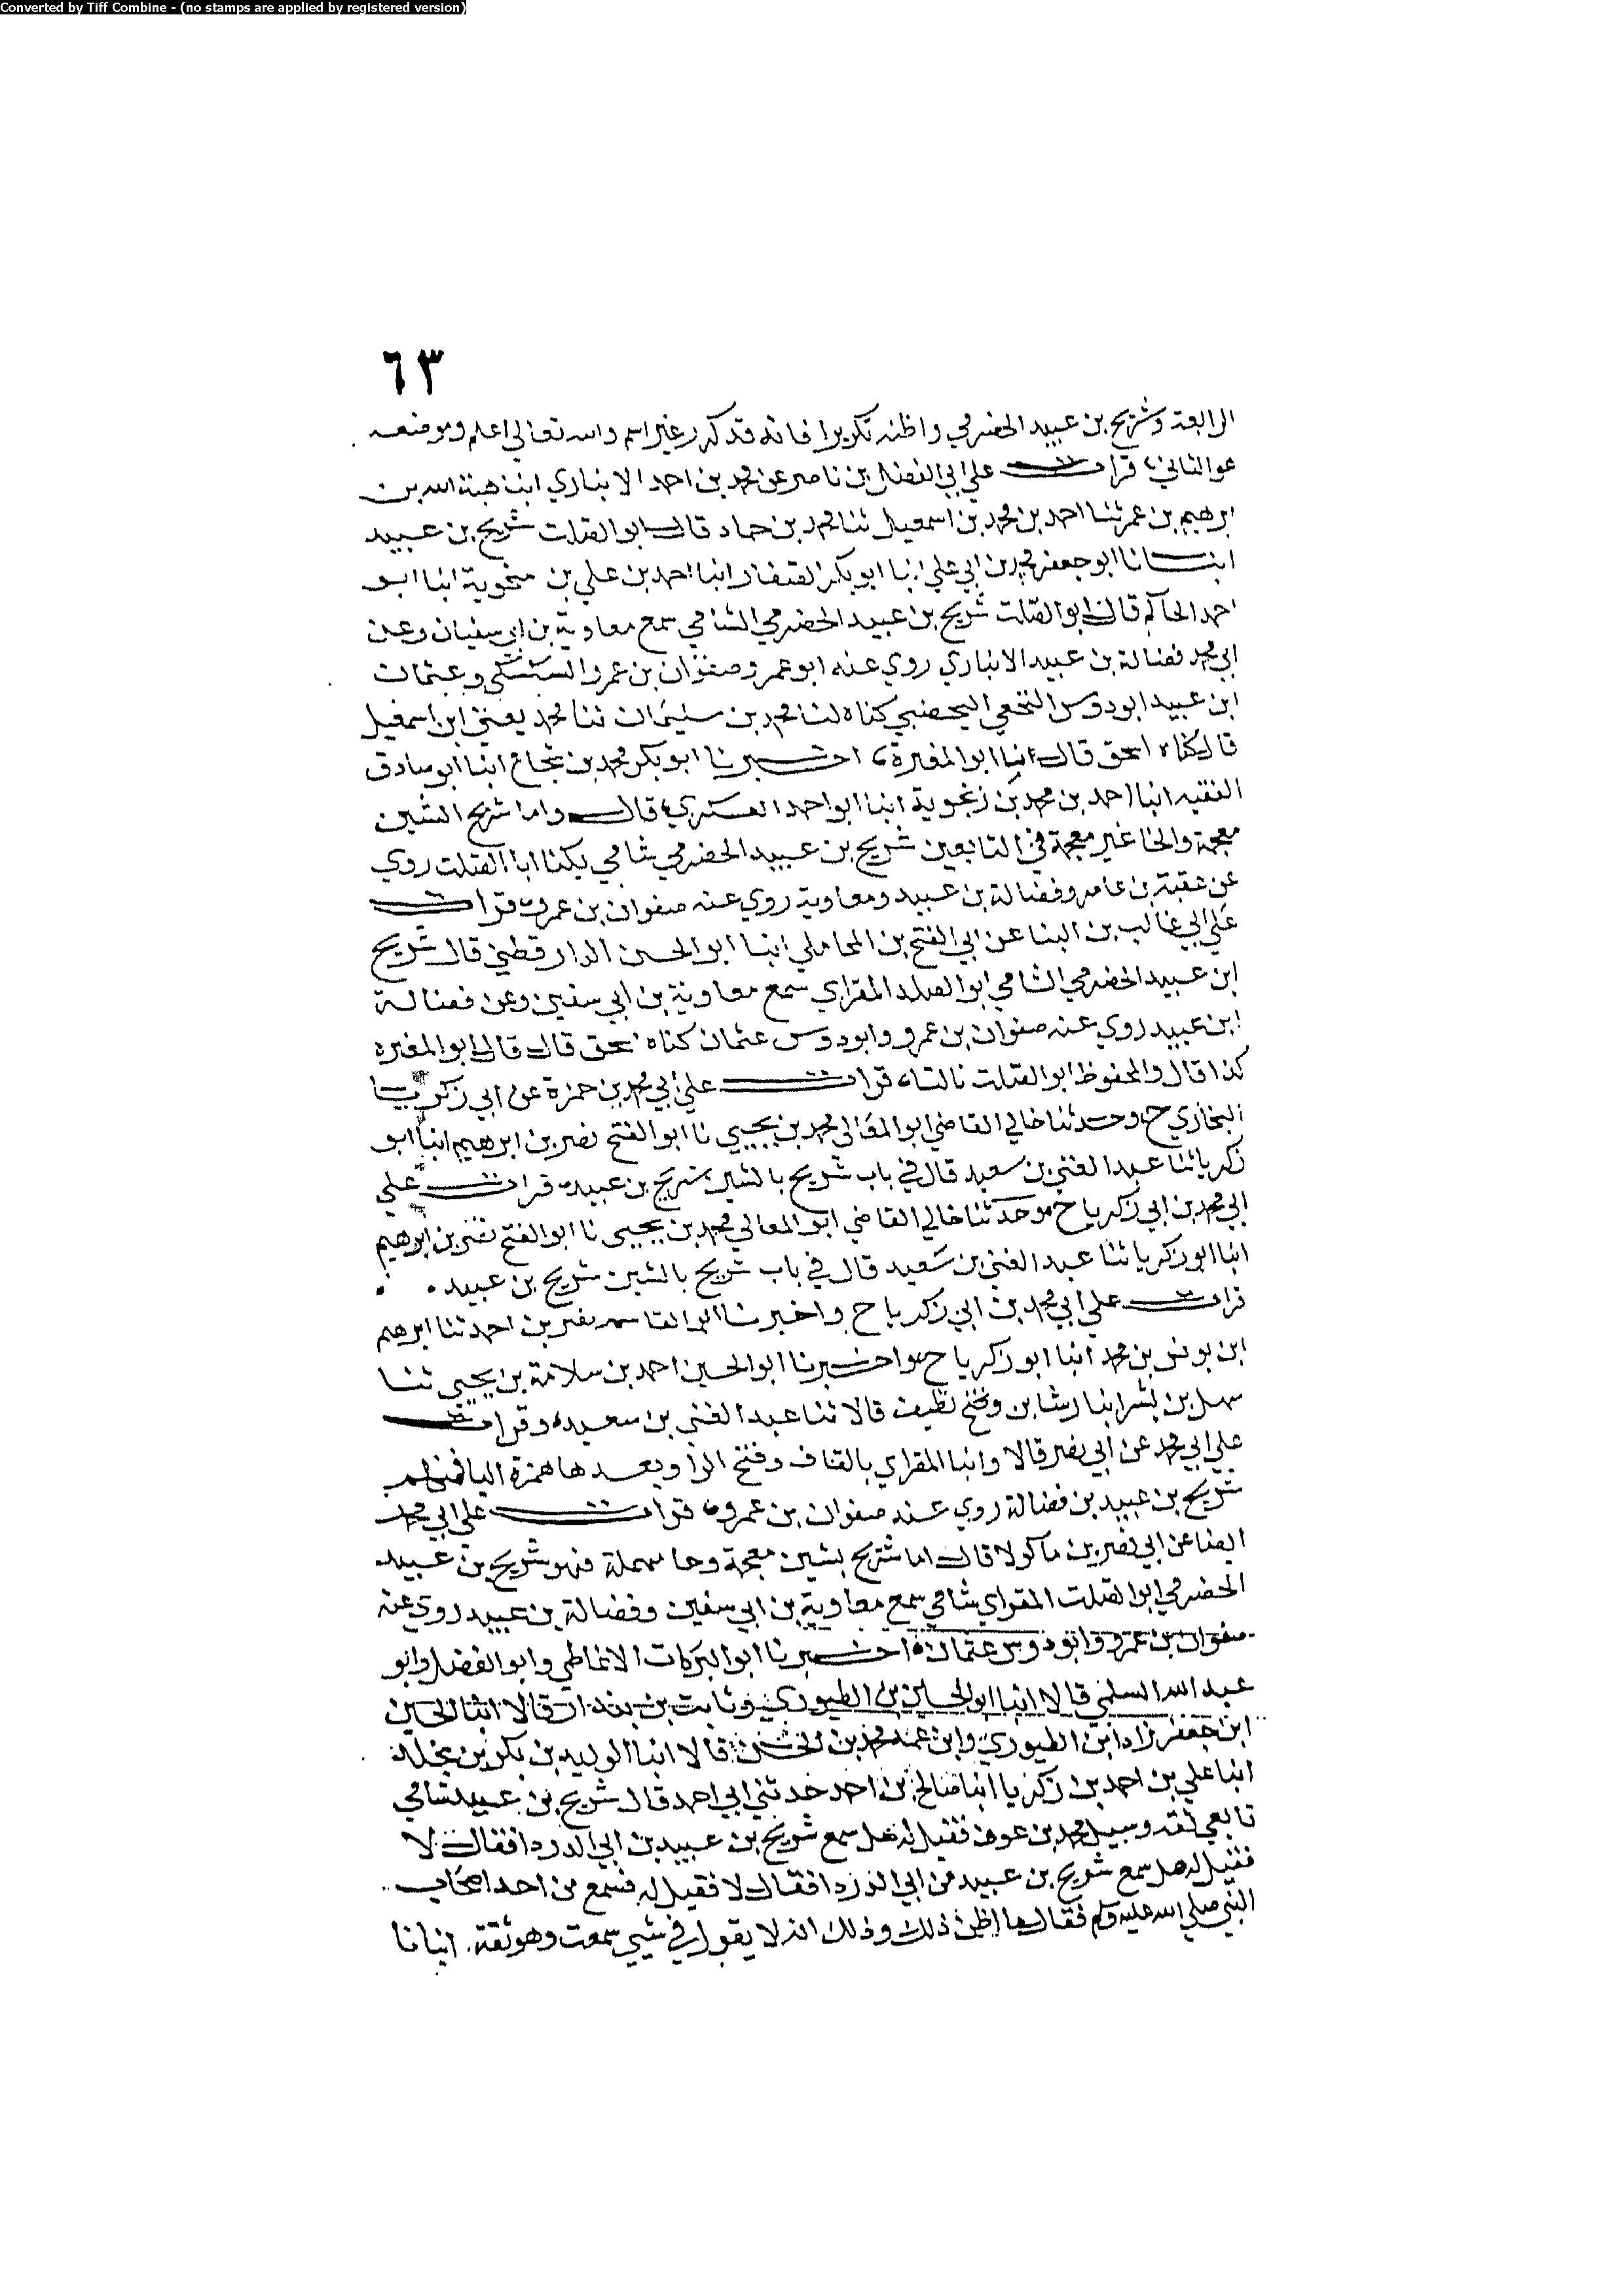 Converted by Tiff Combine - (no stamps are applied by registered version)
٦٣
الرابعة وشريح بن عبيد الحضرمي واظنه تكريرا فانه قد كرر غير اسم والله تعالى اعلم وموضعه
هو الثاني قرات علي ابي الفضل بن ناصر عن محمد بن احمد الانباري ابنا هبة الله بن
ابرهيم بن عمر ثنا احمد بن محمد بن اسمعيل ثنا محمد بن حماد قال ابو الصلت شريح بن عبيد
انبانا ابو جعفر محمد بن ابي علي انبا ابو بكر الصفار انبا احمد بن علي بن منجوية انبا ابو
احمد الحاكم قال ابو الصلت شريح بن عبيد الحضرمي الشامي سمع معاوية بن ابي سفيان وعن
ابي محمد فضالة بن عبيد الانباري روي عنه ابو عمرو صفوان بن عمرو السكسكي وعثمان
ابن عبيد ابو دوس النخعي اليحصبي كناه لنا محمد بن سليمان ثنا محمد يعني ابن اسمعيل
قال كناه اسحق قال انبا ابو المغيرة اخبرنا ابو بكر محمد بن شجاع انبا ابو صادق
الفقيه انبا احمد بن محمد بن زنجوية انبا ابو احمد العسكري قال واما شريح الشين
معجمة والحا غير معجمة في التابعين شريح بن عبيد الحضرمي شامي يكنا ابا الصلت روي
عن عقبة بن عامر وفضالة بن عبيد ومعاوية روي عنه صفوان بن عمرو قرات
علي ابي غالب بن البنا عن ابي الفتح بن المحاملي انبا ابو الحسن الدارقطني قال شريح
ابن عبيد الحضرمي الشامي ابو الصلد المقراي سمع معاوية بن ابي سفين وعن فضالة
ابن عبيد روي عنه صفوان بن عمرو وابو دوس عثمان كناه اسحق قال قال ابو المغيرة
كذا قال والمحفوظ ابو الصلت بالتاء قرات علي ابي محمد بن حمزة عن ابي زكريا
البخاري ح وحدثنا خالي القاضي ابو المعالي محمد بن يحيي نا ابو الفتح نصر بن ابرهيم انبا ابو
زكريا ثنا عبد الغني بن سعيد قال في باب شريح بالشين شريح بن عبيد قرات علي
ابي محمد بن ابي زكريا ح وحدثنا خالي القاضي ابو المعالي محمد بن يحيى نا ابو الفتح نصر بن ابرهيم
انبا ابو زكريا ثنا عبد الغني بن سعيد قال في باب شريح بالشين شريح بن عبيد
قرات علي ابي محمد بن ابي زكريا ح واخبرنا ابو القاسم نصر بن احمد ثنا ابرهيم
ابن يونس بن محمد انبا ابو زكريا ح واخبرنا ابو الحسين احمد بن سلامة بن يحيي ثنا
سهل بن بشر انبا رشا بن نظيف قالا ثنا عبد الغني بن سعيد وقرات
علي ابي محمد عن ابي نصر قالا وانبا المقراي بالقاف وفتح الرا وبعدها همزة اليا فمنهم
شريح بن عبيد بن فضالة روي عنه صفوان بن عمرو قرات علي ابي محمد
ايضا عن ابي نصر بن ماكولا قال اما شريح بشين معجمة وحا مهملة فهو شريح بن عبيد
الحضرمي ابو الصلت المقراي شامي سمع معاوية بن ابي سفين وفضالة بن عبيد روي عنه
صفوان بن عمرو وابو دوس عثمان اخبرنا ابو البركات الانماطي وابو الفضل وابو
عبد الله السلمي قالا انبا ابو الحسين بن الطيوري وثابت بن بندار قالا انبا الحسين
ابن جعفر زاد ابن الطيوري وابن عمه محمد بن الحسن قالا انبا الوليد بن بكر بن مخلد
انبا علي بن احمد بن زكريا انبا صالح بن احمد حدثني ابي احمد قال شريح بن عبيد شامي
تابعي ثقه وسيل محمد بن عوف فقيل له هل سمع شريح بن عبيد بن ابي الدردا فقال لا
فقيل له هل سمع شريح بن عبيد من ابي الدردا فقال لا فقيل له فسمع من احد اصحاب
النبي صلي الله عليه وسلم فقال ما اظن ذلك وذلك انه لا يقول في شي سمعت وهو ثقة. انبانا